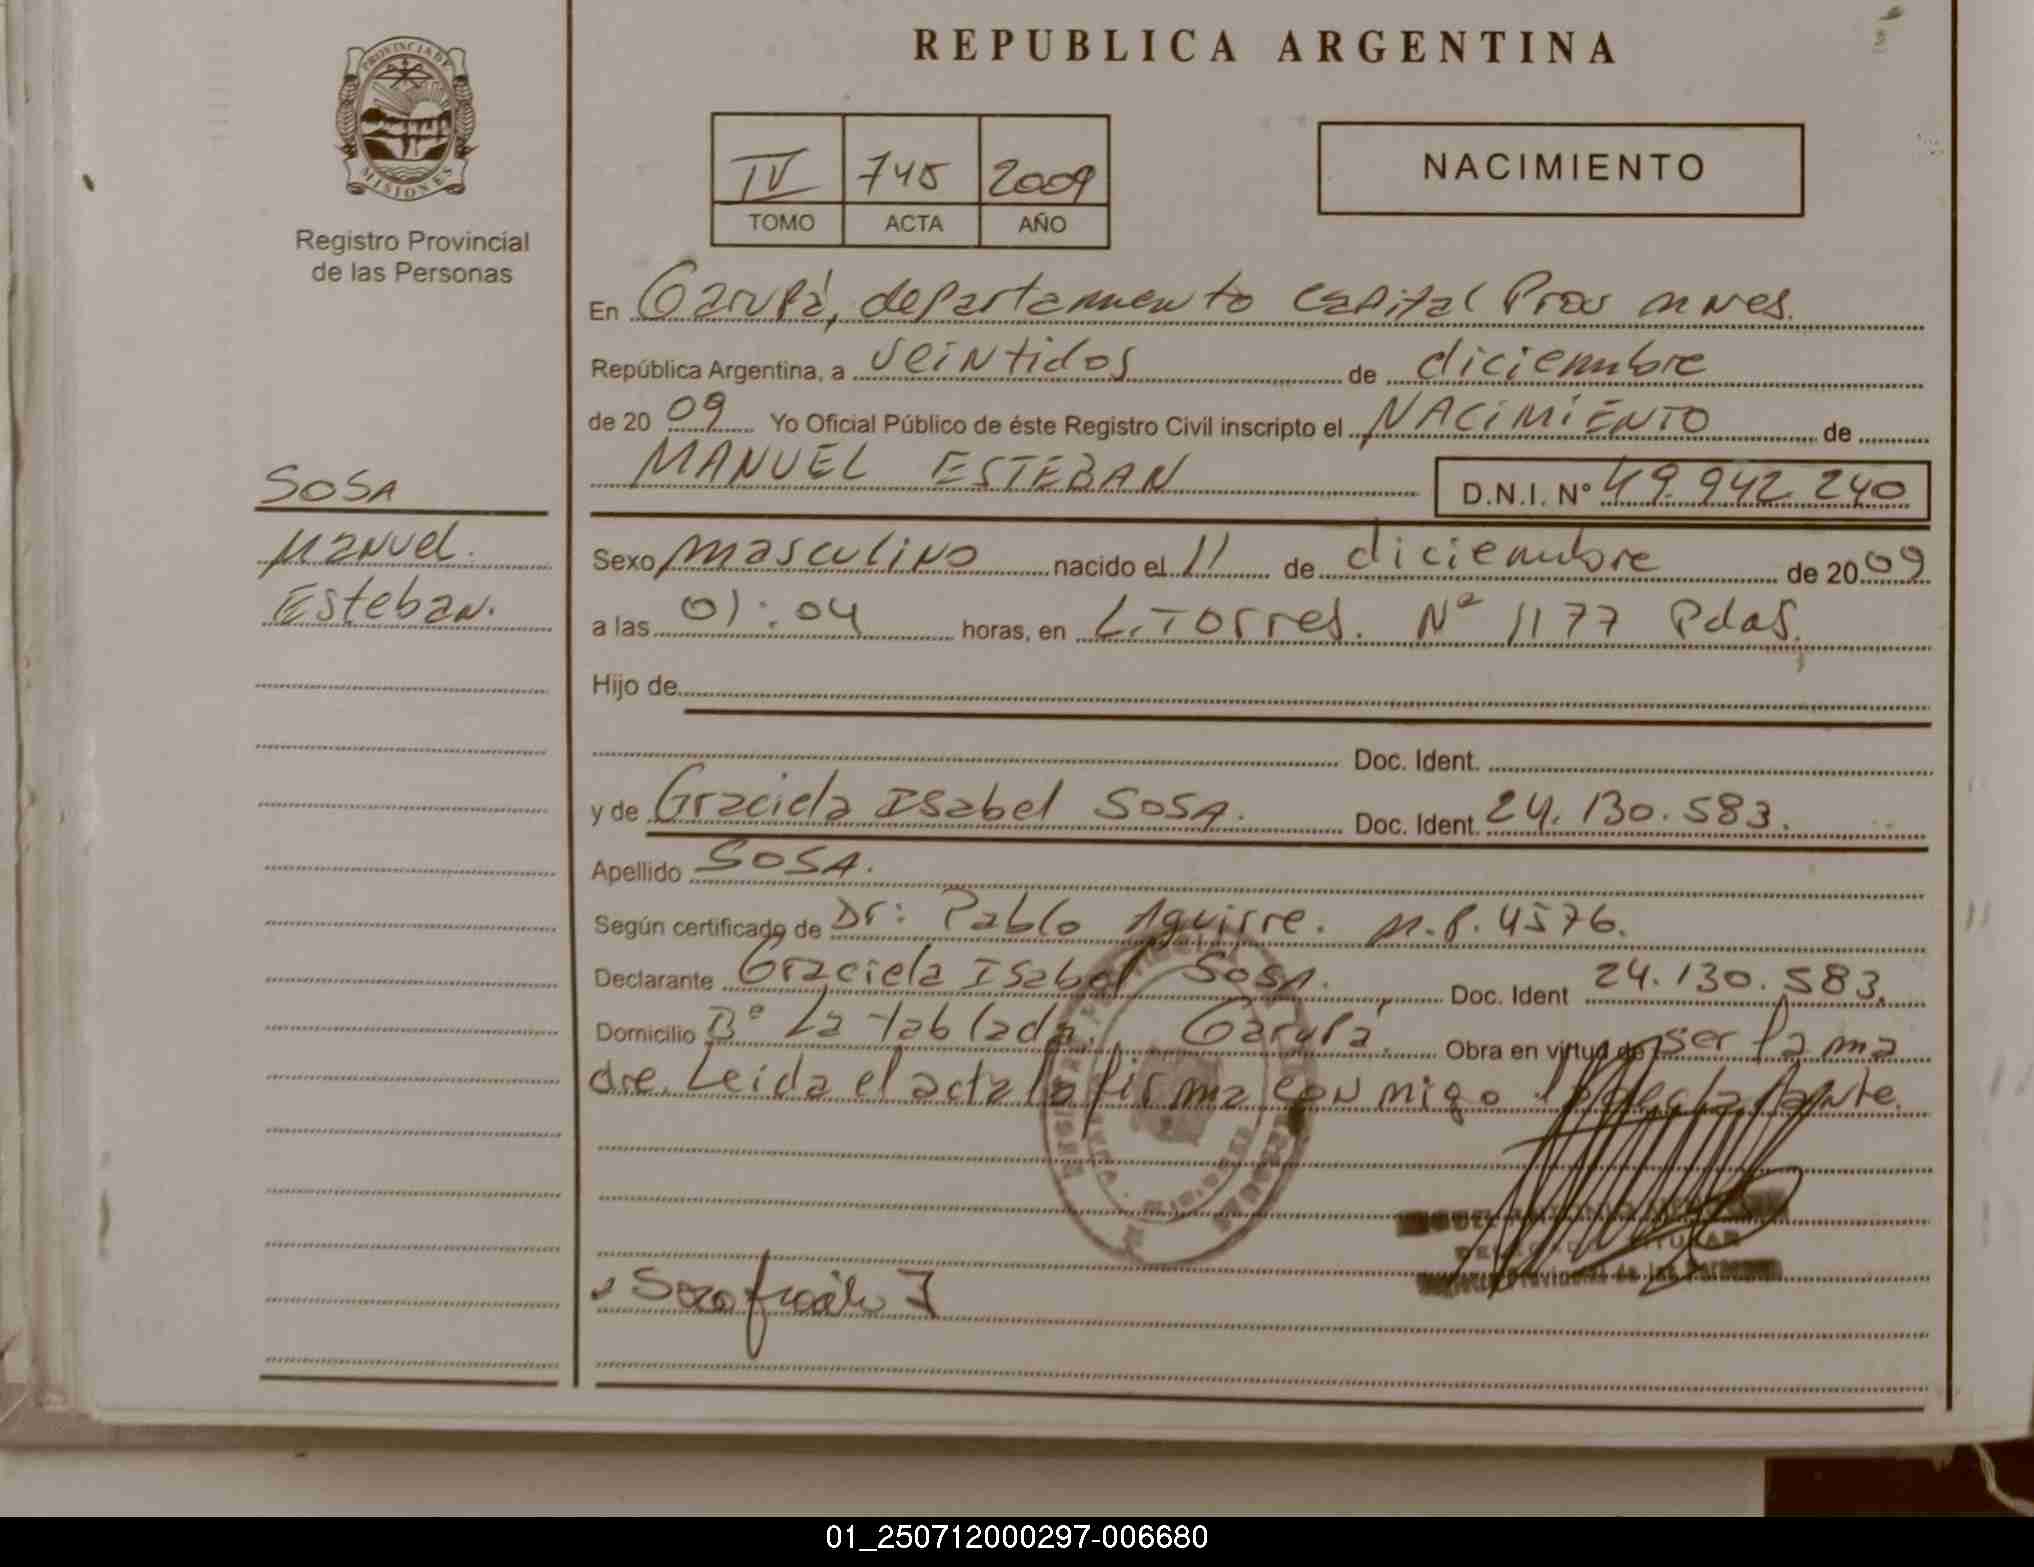 REPUBLICA ARGENTINA
PROVINCIA DE
MISIONES
Registro Provincial
de las Personas
IV 745 2009
TOMO ACTA AÑO
NACIMIENTO
En Garupá, departamento Capital Prov mnes.
República Argentina, a veintidos de diciembre
de 2009 Yo Oficial Público de éste Registro Civil inscripto el NACIMIENTO de
MANUEL ESTEBAN D.N.I. Nº 49.942.240
SOSA
Manuel.
Esteban.
Sexo masculino nacido el 11 de diciembre de 2009
a las 01:04 horas, en L. Torres. Nº 1177 Pdas.
Hijo de
Doc. Ident.
y de Graciela Isabel SOSA. Doc. Ident. 24.130.583.
Apellido SOSA.
Según certificado de Dr: Pablo Aguirre. M.P. 4576.
Declarante Graciela Isabel SOSA. Doc. Ident 24.130.583.
Domicilio Bº La tablada. Garupá. Obra en virtud de ser la ma
dre. Leida el acta la firma conmigo la declarante.
Provincial de las Personas
01_250712000297-006680